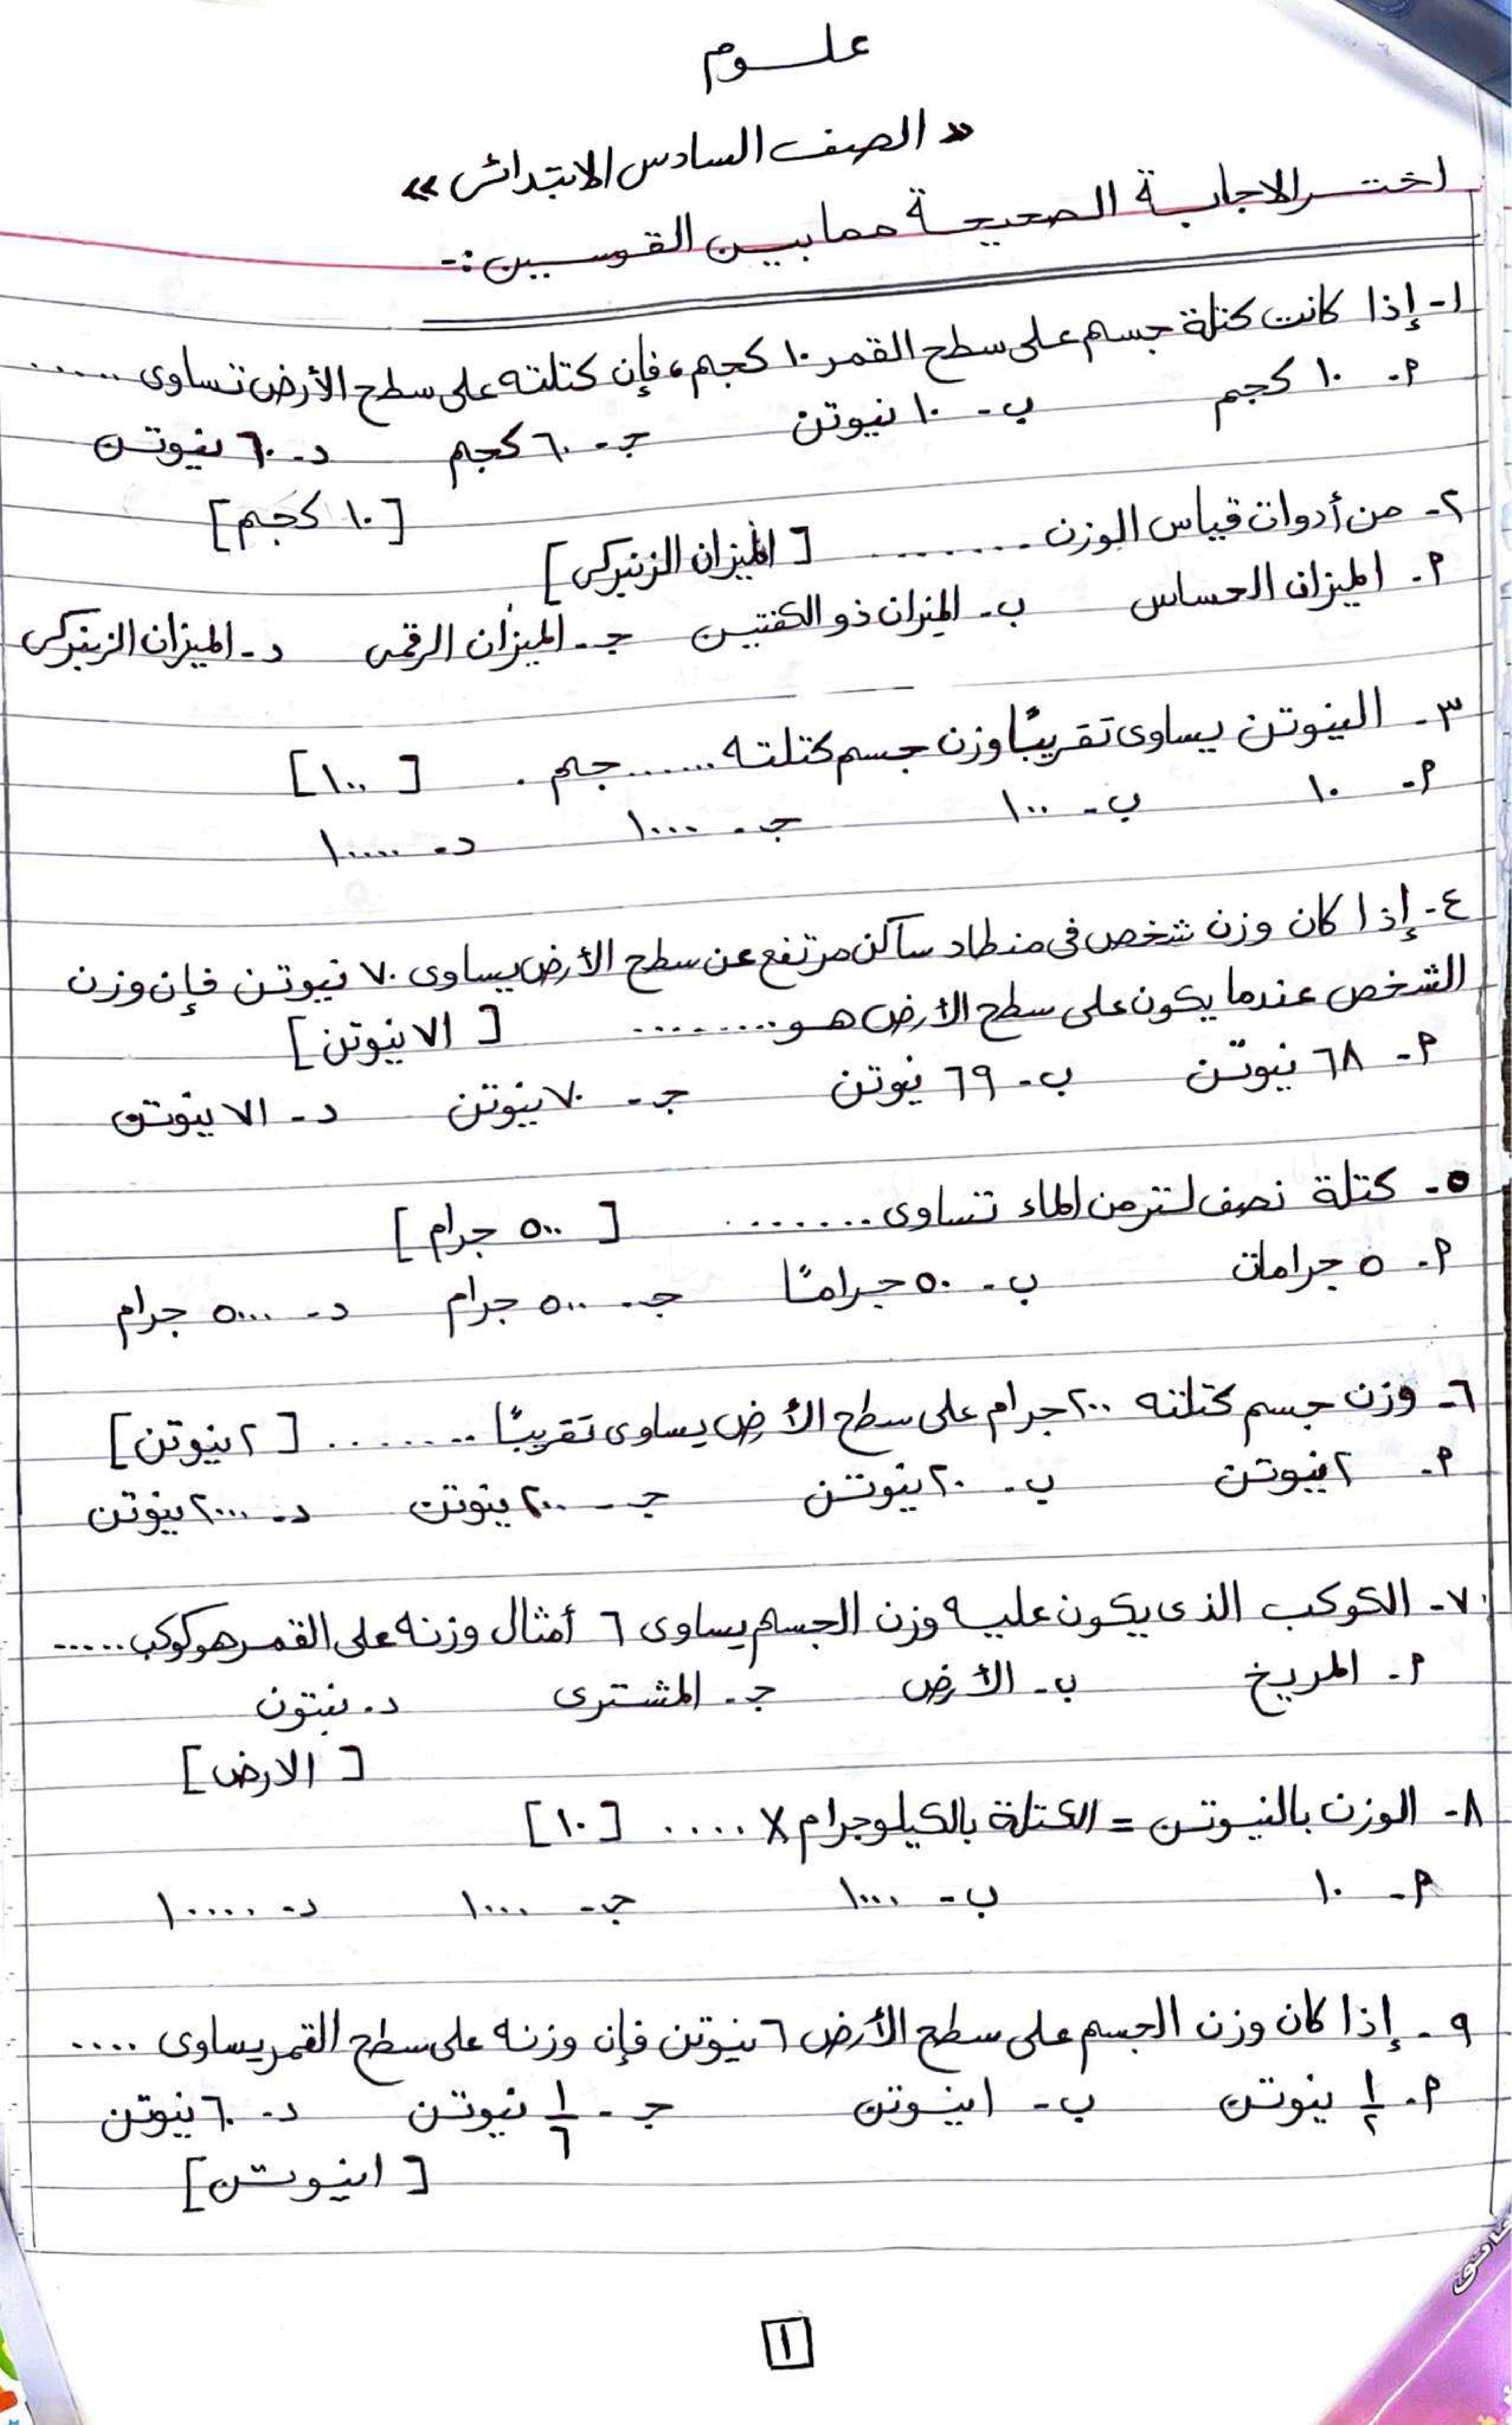 علـــوم
« الصف السادس الابتدائى »
اختر الاجابة الصحيحة مما بين القوسين :-
١- إذا كانت كتلة جسم على سطح القمر ١٠ كجم، فإن كتلته على سطح الأرض تساوى ......
أ- ١٠ كجم ب- ١٠ نيوتن جـ- ٦٠ كجم د- ٦٠ نيوتن
[ ١٠ كجم ]
٢- من أدوات قياس الوزن ........ [ الميزان الزنبركى ]
أ- الميزان الحساس ب- الميزان ذو الكفتين جـ- الميزان الرقمى د- الميزان الزنبركى
٣- النيوتن يساوى تقريبًا وزن جسم كتلته ...... جم . [ ١٠٠ ]
أ- ١٠ ب- ١٠٠ جـ- ١٠٠٠ د- ١٠٠٠٠
٤- إذا كان وزن شخص فى منطاد ساكن مرتفع عن سطح الأرض يساوى ٧٠ نيوتن فإن وزن
الشخص عندما يكون على سطح الأرض هو ........ [ ٧١ نيوتن ]
أ- ٦٨ نيوتن ب- ٦٩ نيوتن جـ- ٧٠ نيوتن د- ٧١ نيوتن
٥- كتلة نصف لتر من الماء تساوى ....... [ ٥٠٠ جرام ]
أ- ٥ جرامات ب- ٥٠ جرامًا جـ- ٥٠٠ جرام د- ٥٠٠٠ جرام
٦- وزن جسم كتلته ٢٠٠ جرام على سطح الأرض يساوى تقريبًا ........ [ ٢ نيوتن ]
أ- ٢ نيوتن ب- ٢٠ نيوتن جـ- ٢٠٠ نيوتن د- ٢٠٠٠ نيوتن
٧- الكوكب الذى يكون عليه وزن الجسم يساوى ٦ أمثال وزنه على القمر هو كوكب ......
أ- المريخ ب- الأرض جـ- المشترى د- نبتون
[ الارض ]
٨- الوزن بالنيوتن = الكتلة بالكيلو جرام X .... [ ١٠ ]
أ- ١٠ ب- ١٠٠٠ جـ- ١٠٠٠ د- ١٠٠٠٠
٩- إذا كان وزن الجسم على سطح الأرض ٦ نيوتن فإن وزنه على سطح القمر يساوى ....
أ- ١/٢ نيوتن ب- ١ نيوتن جـ- ١/٦ نيوتن د- ٦٠ نيوتن
[ ١ نيوتن ]
١